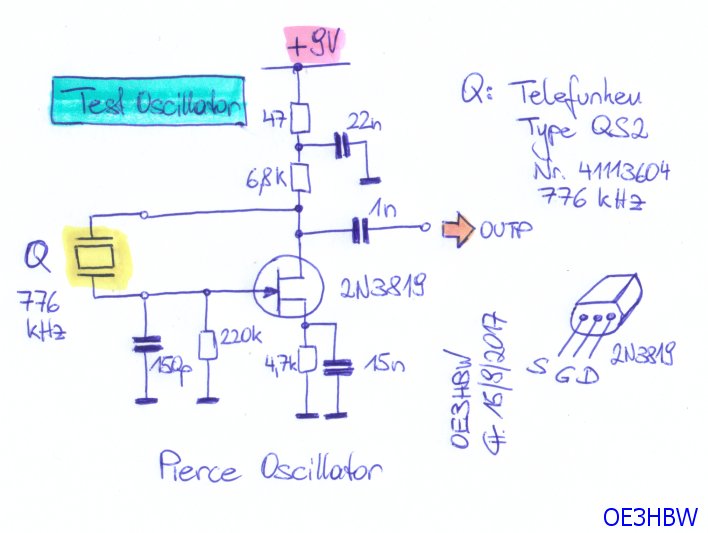 +9V
Test Oscillator
47
22n
6,8k
1n
OUTP
Q: Telefunken
Type QS2
Nr. 41113604
776 kHz
Q
776
kHz
2N3819
150p
220k
4,7k
15n
S G D
2N3819
OE3HBW
15/8/2017
Pierce Oscillator
OE3HBW